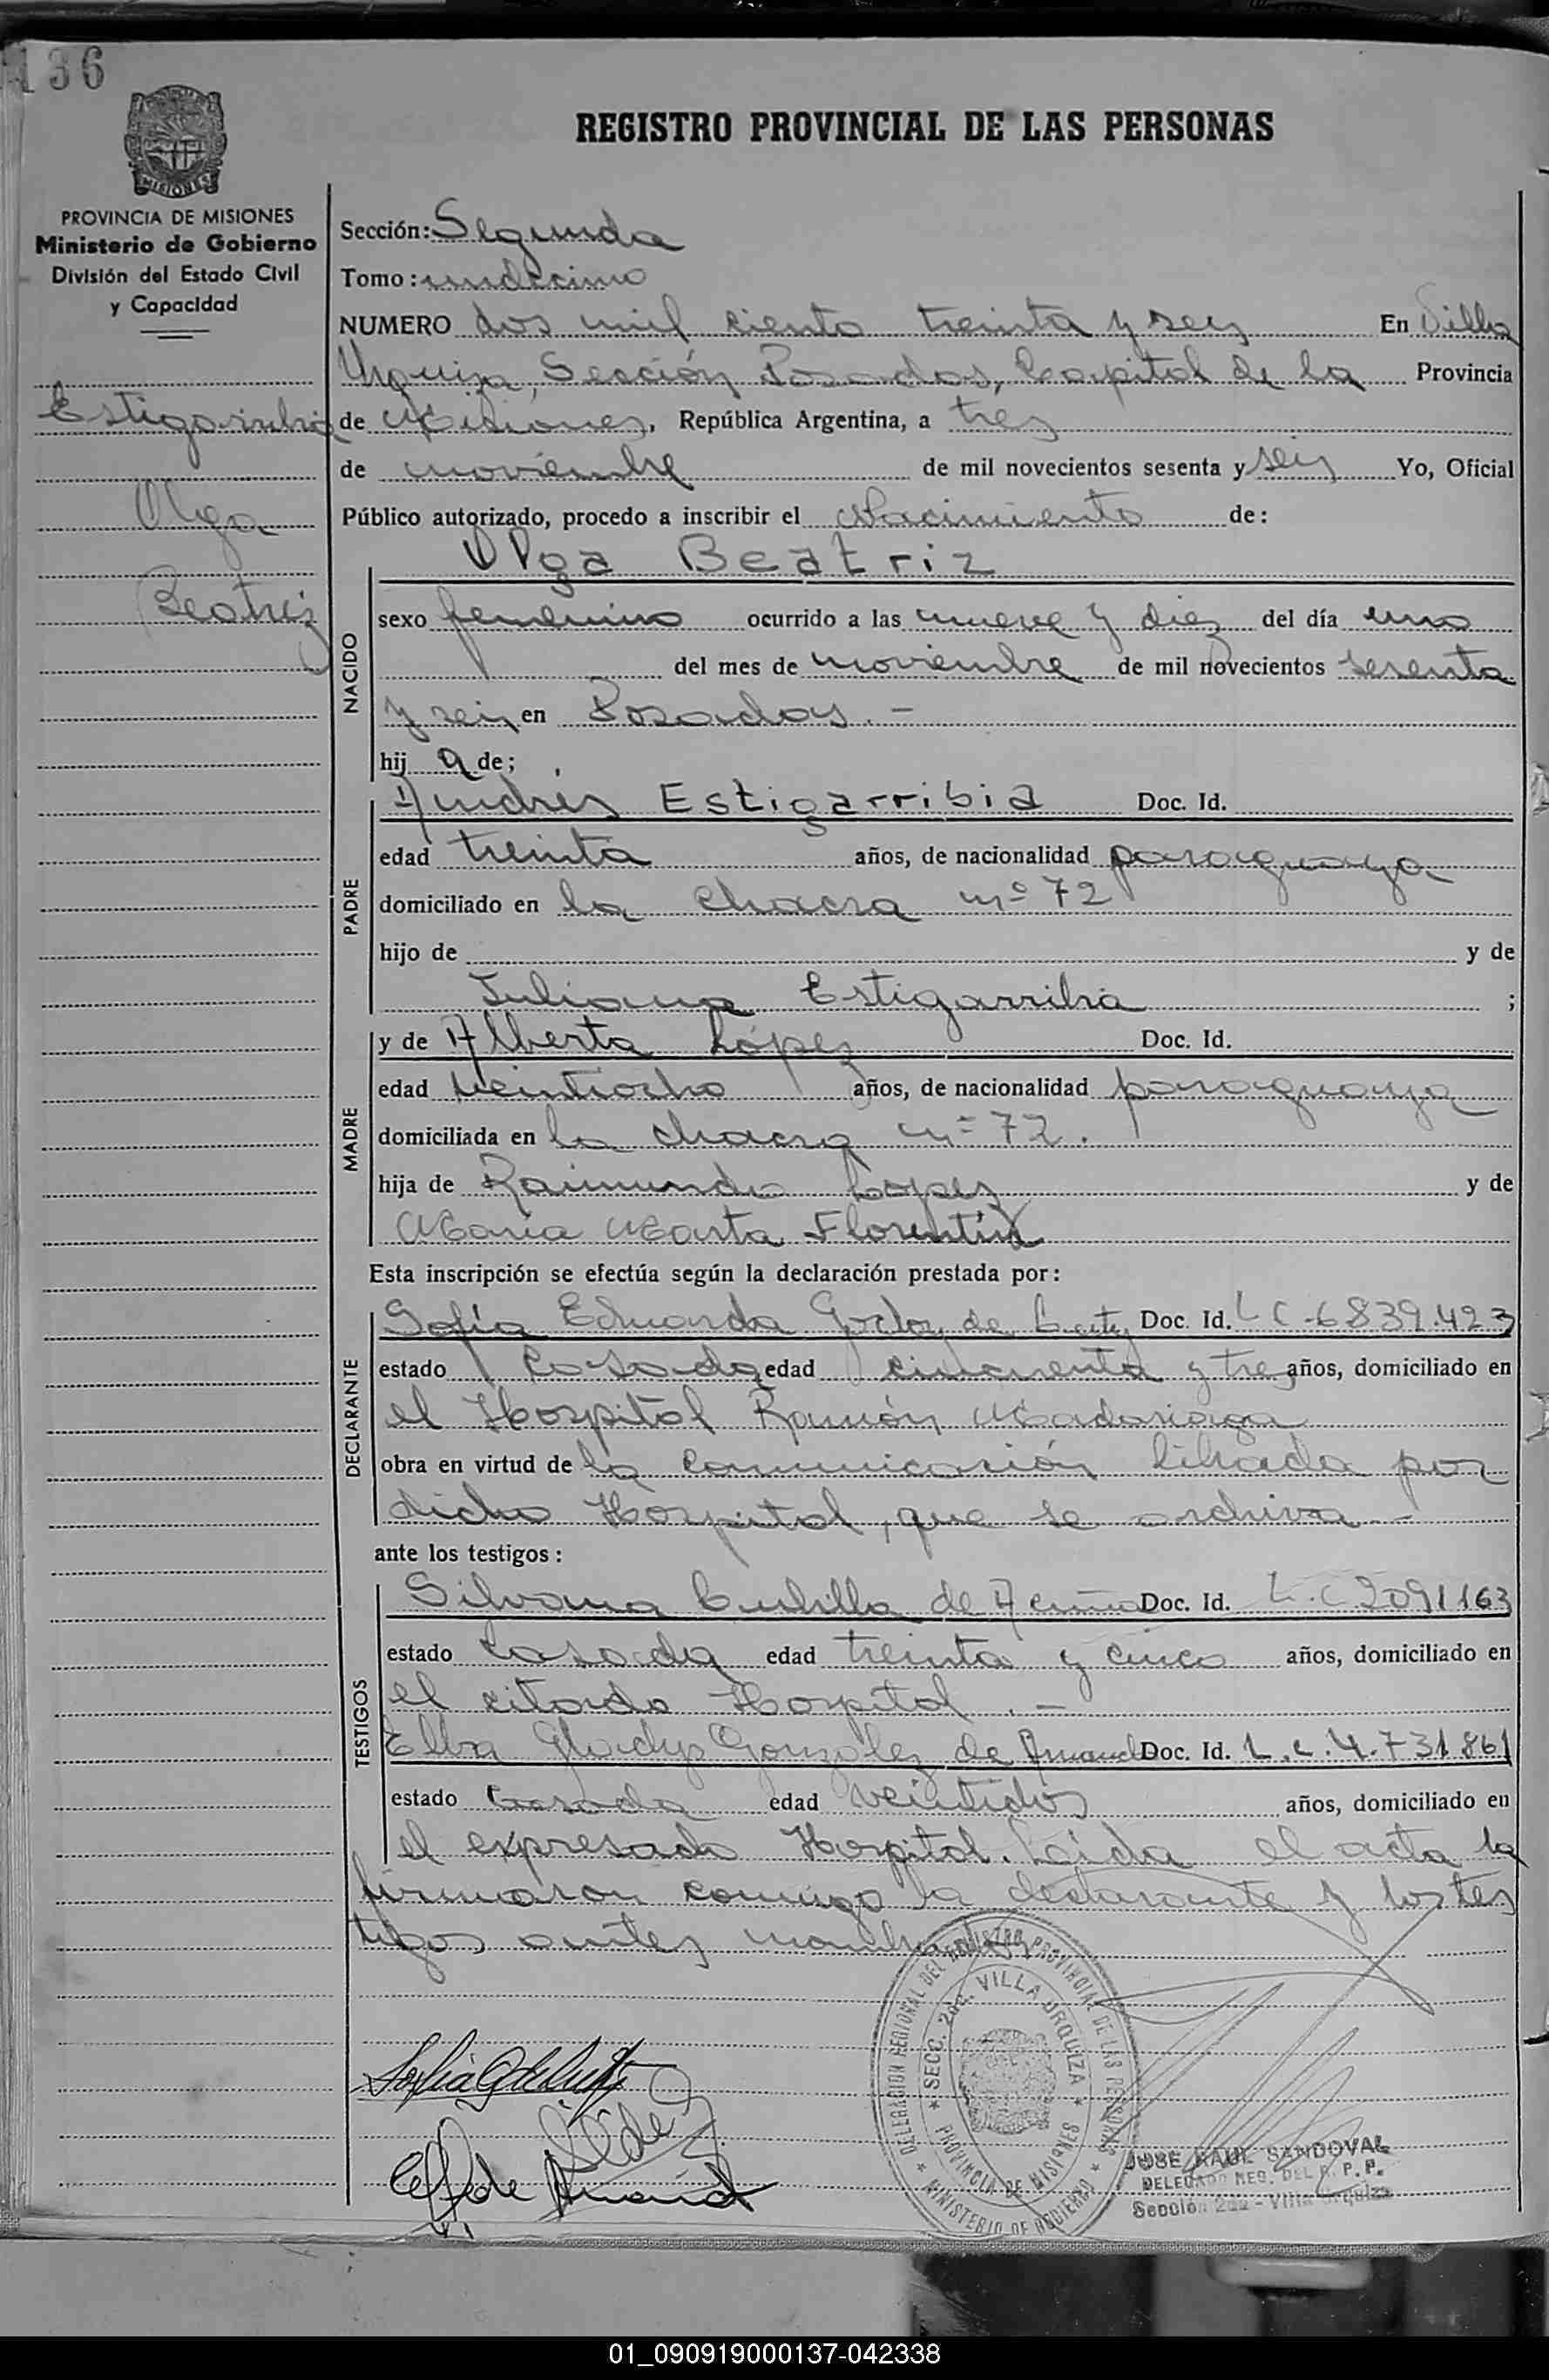 136
REGISTRO PROVINCIAL DE LAS PERSONAS
MISIONES
PROVINCIA DE MISIONES
Ministerio de Gobierno
División del Estado Civil
y Capacidad
Estigarribia
Olga
Beatriz
Sección: Segunda
Tomo: undécimo
NUMERO dos mil ciento treinta y seis En Villa
Urquiza, Sección Posadas, Capital de la Provincia
de Misiones, República Argentina, a tres
de noviembre de mil novecientos sesenta y seis Yo, Oficial
Público autorizado, procedo a inscribir el Nacimiento de:
Olga Beatriz
NACIDO
sexo femenino ocurrido a las nueve y diez del día uno
del mes de noviembre de mil novecientos sesenta
y seis en Posadas. -
hij a de;
PADRE
Andrés Estigarribia Doc. Id.
edad treinta años, de nacionalidad paraguaya
domiciliado en la chacra nº 72
hijo de y de
Juliana Estigarribia ;
MADRE
y de Alberta López Doc. Id.
edad veintiocho años, de nacionalidad paraguaya
domiciliada en la chacra nº 72.
hija de Raimundo Lopez y de
María Marta Florentín
Esta inscripción se efectúa según la declaración prestada por:
DECLARANTE
Sofía Eduarda Godoy de Doc. Id. L C 6839.423
estado Casada edad cincuenta y tres años, domiciliado en
el Hospital Ramón Madariaga
obra en virtud de la comunicación librada por
dicho Hospital, que se archiva -
ante los testigos:
TESTIGOS
Silvana de Doc. Id. L.C 2091163
estado Casada edad treinta y cinco años, domiciliado en
el citado Hospital. -
Elba Gladys Gonzalez de Doc. Id. L.C.4.731.861
estado Casada edad veintidos años, domiciliado en
el expresado Hospital. Leida el acta la
firmaron conmigo la declarante y los tes
tigos antes
DELEGACION REGIONAL DEL REGISTRO PROVINCIAL DE LAS PERSONAS
★ SECC. 2da. VILLA URQUIZA ★
PROVINCIA DE MISIONES
★ MINISTERIO DE GOBIERNO ★
JOSE RAUL SANDOVAL
DELEGADO REG. DEL R. P. P.
Sección 2da - Villa Urquiza
01_090919000137-042338